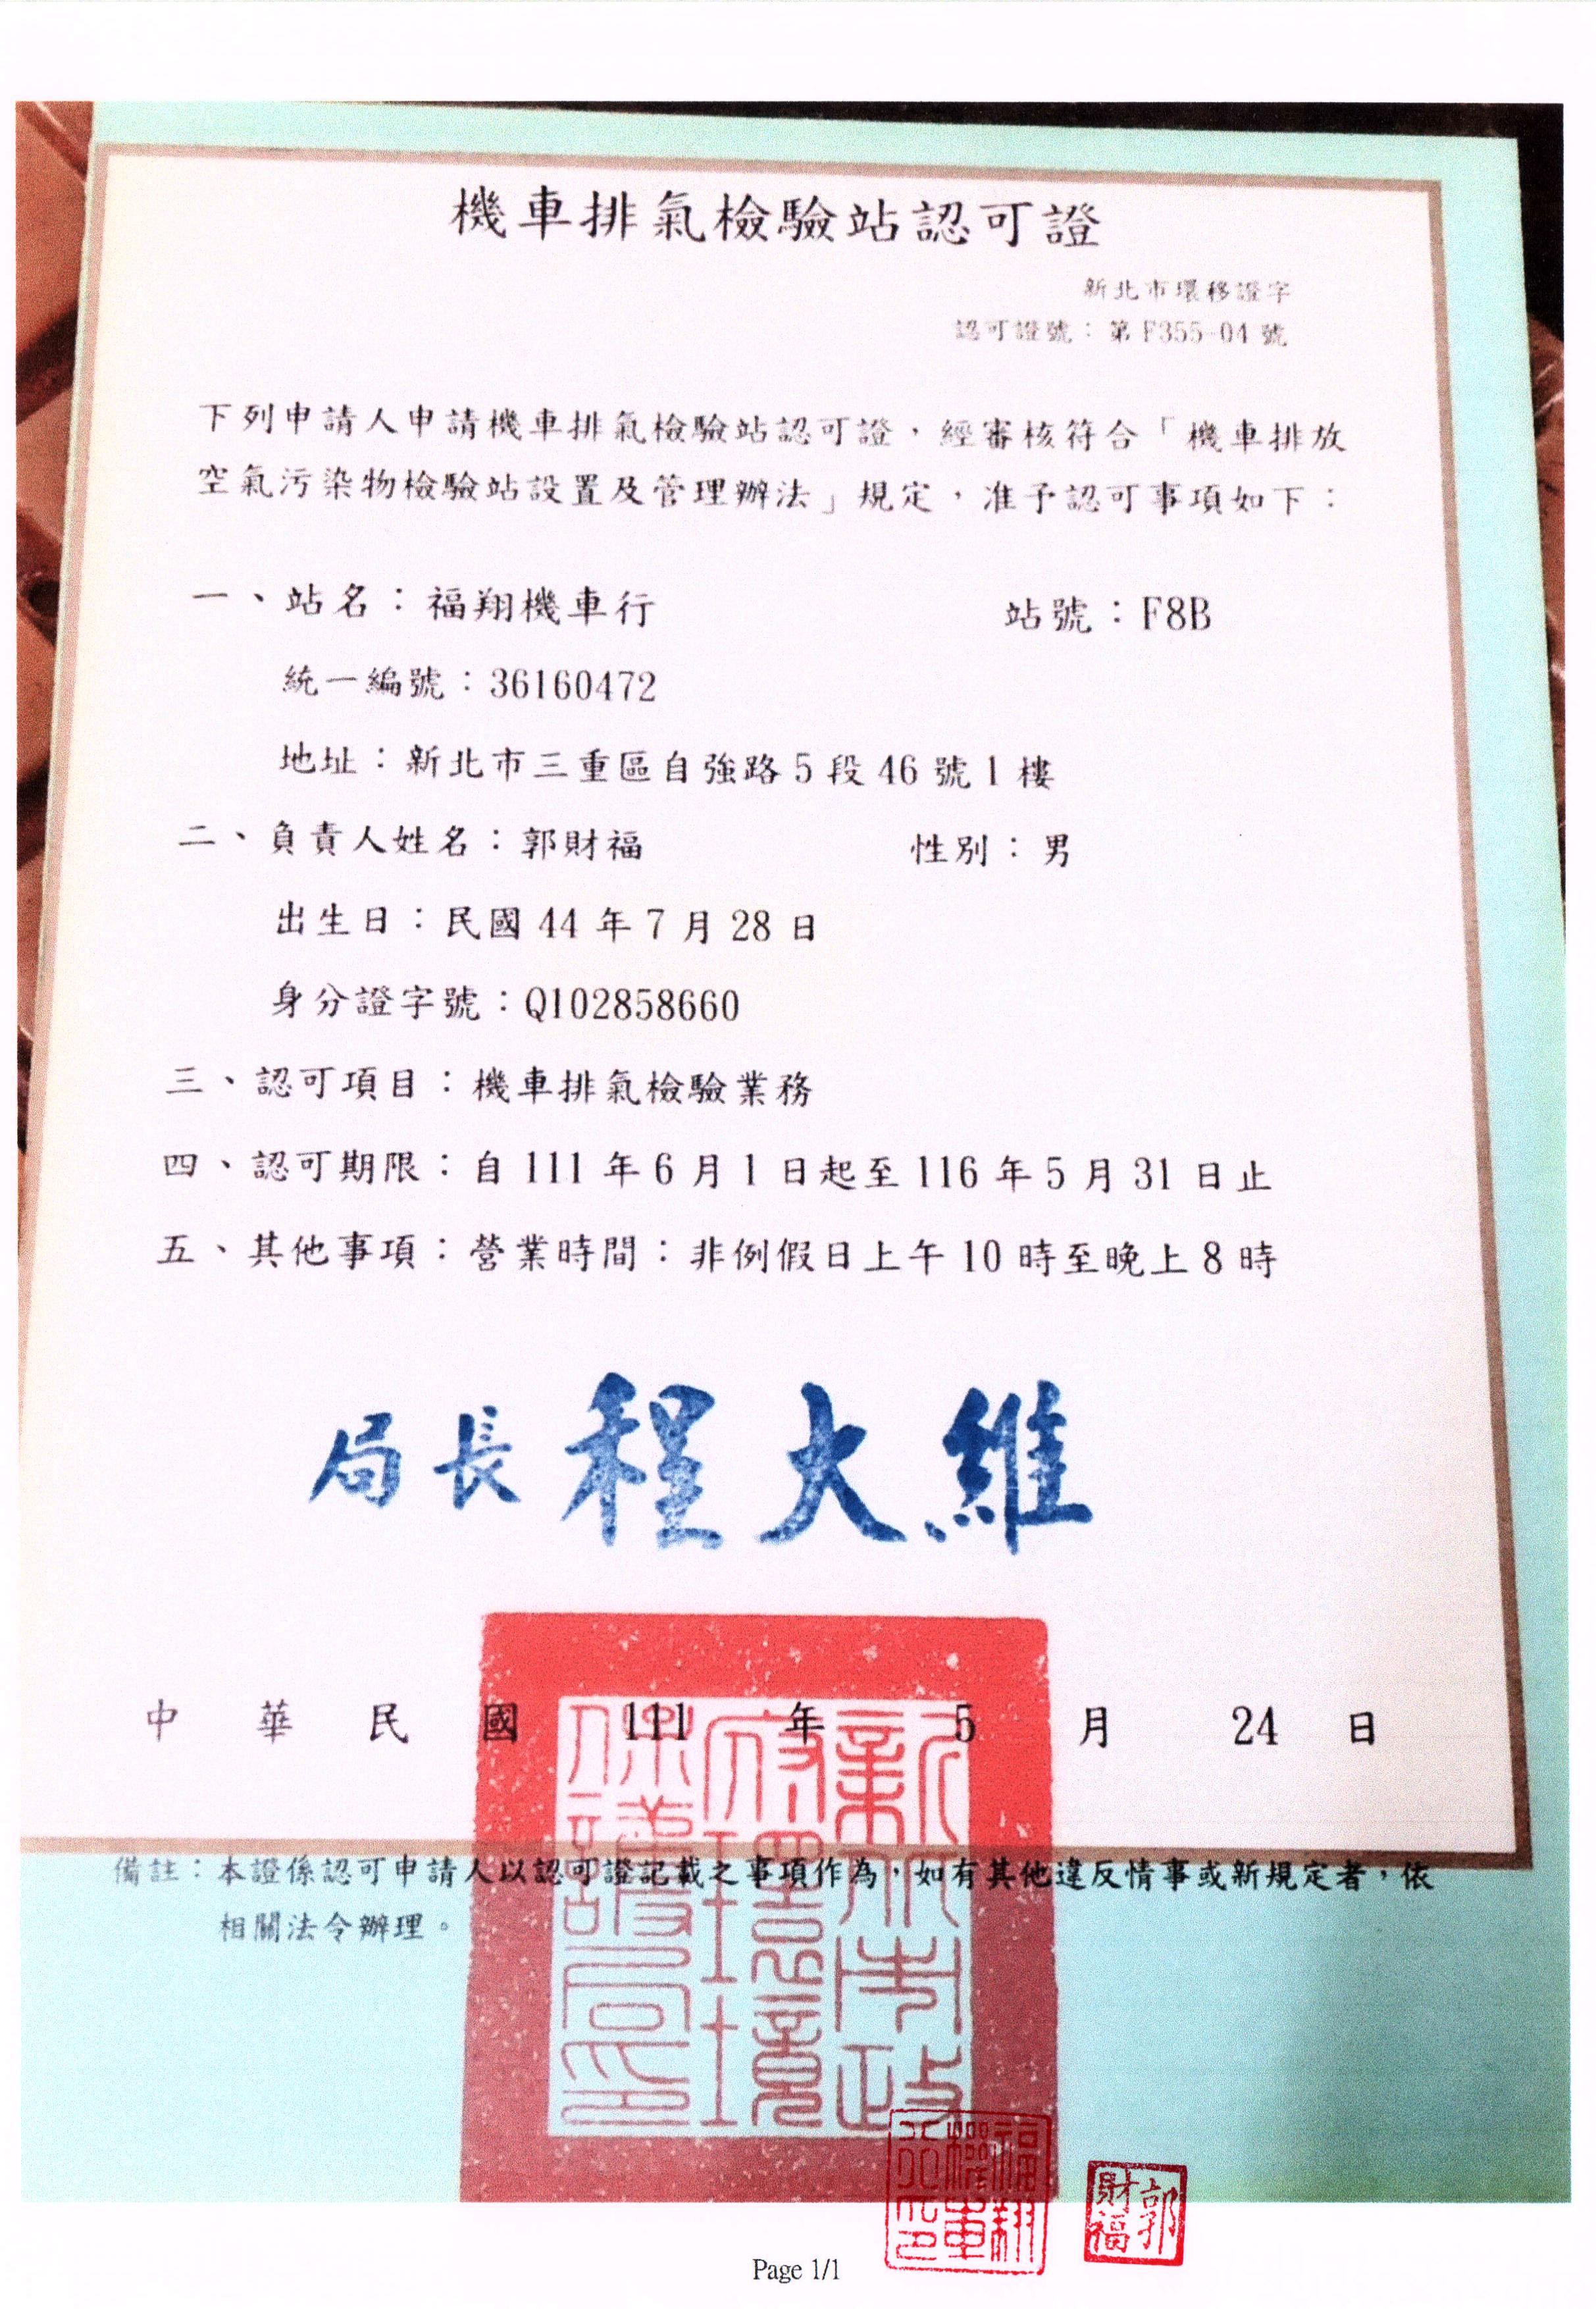 機車排氣檢驗站認可證
新北市環移證字
認可證號：第 F355-04 號
下列申請人申請機車排氣檢驗站認可證，經審核符合「機車排放
空氣污染物檢驗站設置及管理辦法」規定，准予認可事項如下：
一、站名：福翔機車行 站號：F8B
統一編號：36160472
地址：新北市三重區自強路 5 段 46 號 1 樓
二、負責人姓名：郭財福 性別：男
出生日：民國 44 年 7 月 28 日
身分證字號：Q102858660
三、認可項目：機車排氣檢驗業務
四、認可期限：自 111 年 6 月 1 日起至 116 年 5 月 31 日止
五、其他事項：營業時間：非例假日上午 10 時至晚上 8 時
局長程大維
中華民國 111 年 5 月 24 日
新北市政
府環境
保護局印
備註：本證係認可申請人以認可證記載之事項作為，如有其他違反情事或新規定者，依
相關法令辦理。
福翔
機車
行印
郭
財福
Page 1/1